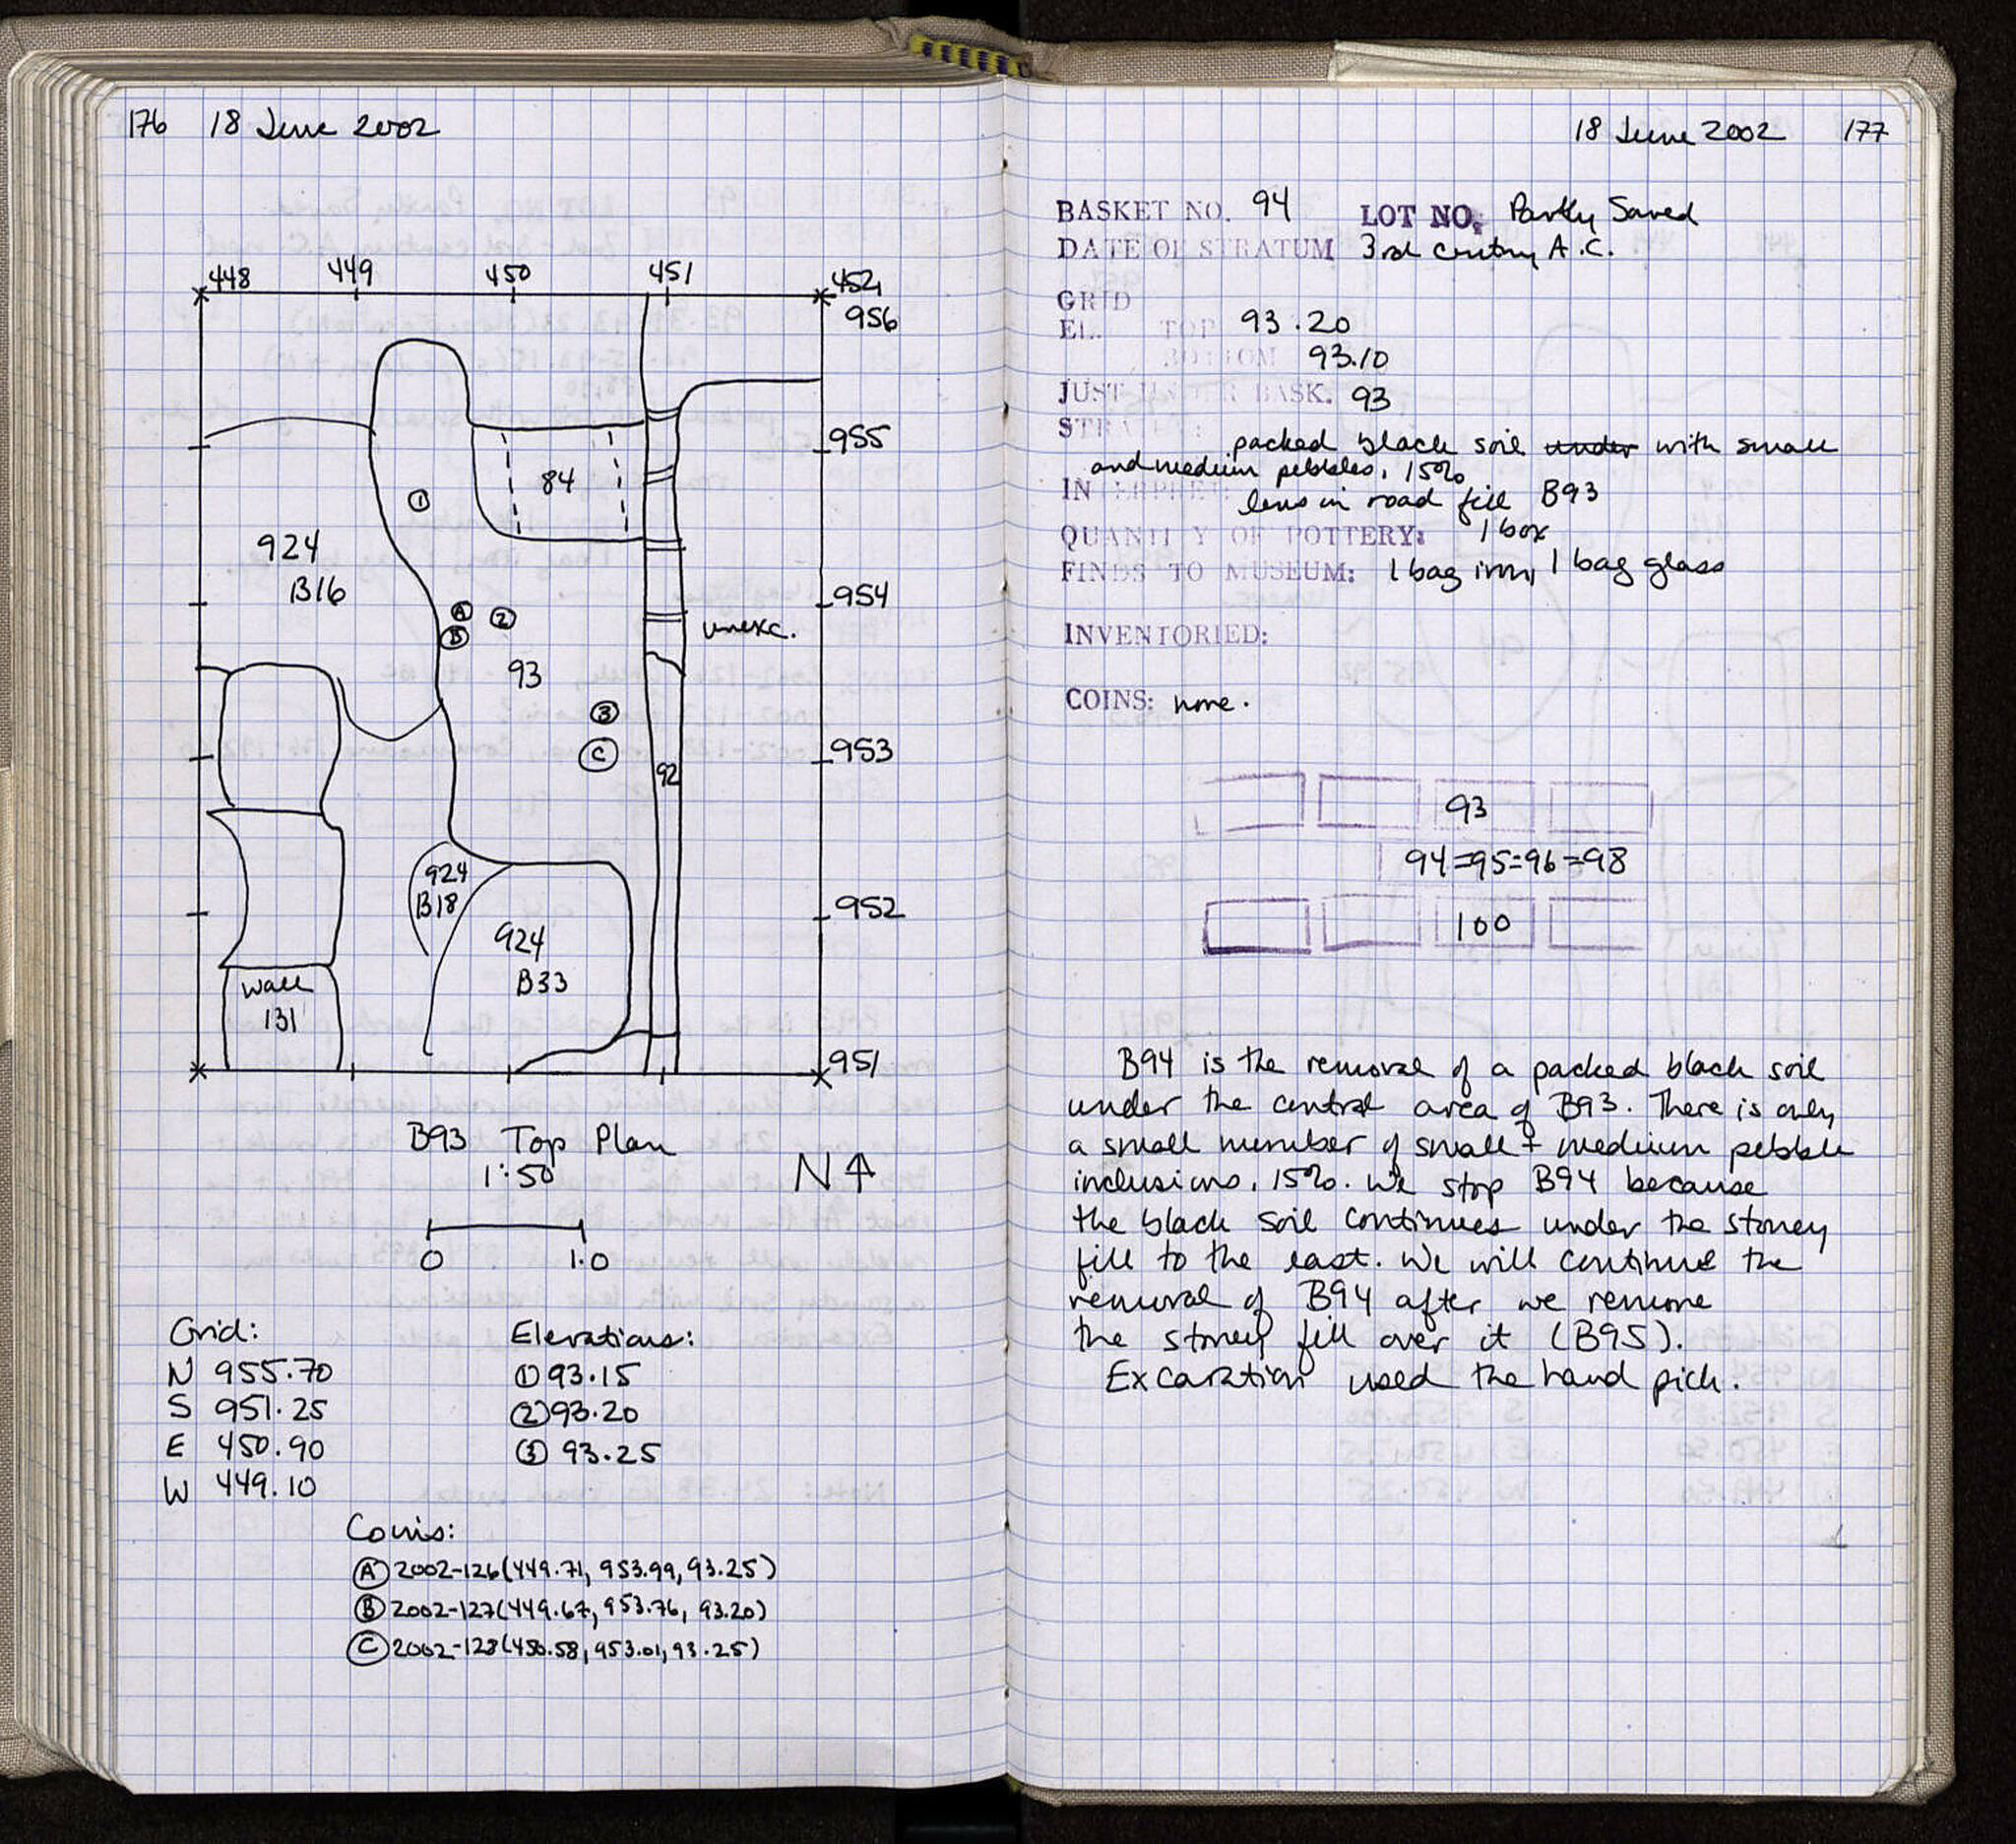 176 18 June 2002
448 449 450 451 452
956
955
84
①
924
B16
954
Ⓐ ②
Ⓑ
unexc.
93
③
953
Ⓒ
92
924
B18
952
924
B33
Wall
131
951
B93 Top Plan
1:50
N
0 1.0
Grid: Elevations:
N 955.70 ① 93.15
S 951.25 ② 93.20
E 450.90 ③ 93.25
W 449.10
Coins:
Ⓐ 2002-126 (449.71, 953.99, 93.25)
Ⓑ 2002-127 (449.67, 953.76, 93.20)
Ⓒ 2002-128 (450.58, 953.01, 93.25)
18 June 2002 177
BASKET NO. 94 LOT NO. Partly Saved
DATE OF STRATUM 3rd century A.C.
GRID
EL. TOP 93.20
BOTTOM 93.10
JUST UNDER BASK. 93
STRATUM: packed black soil under with small
and medium pebbles, 15%
INTERPRET: lens in road fill B93
QUANTITY OF POTTERY: 1 box
FINDS TO MUSEUM: 1 bag iron, 1 bag glass
INVENTORIED:
COINS: none.
93
94=95=96=98
100
B94 is the removal of a packed black soil
under the central area of B93. There is only
a small number of small + medium pebble
inclusions, 15%. We stop B94 because
the black soil continues under the stoney
fill to the east. We will continue the
removal of B94 after we remove
the stoney fill over it (B95).
Excavation used the hand pick.